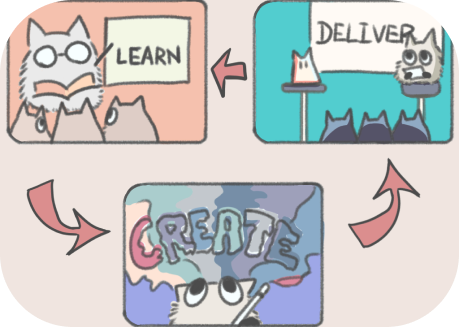 LEARN
DELIVER
CREATE